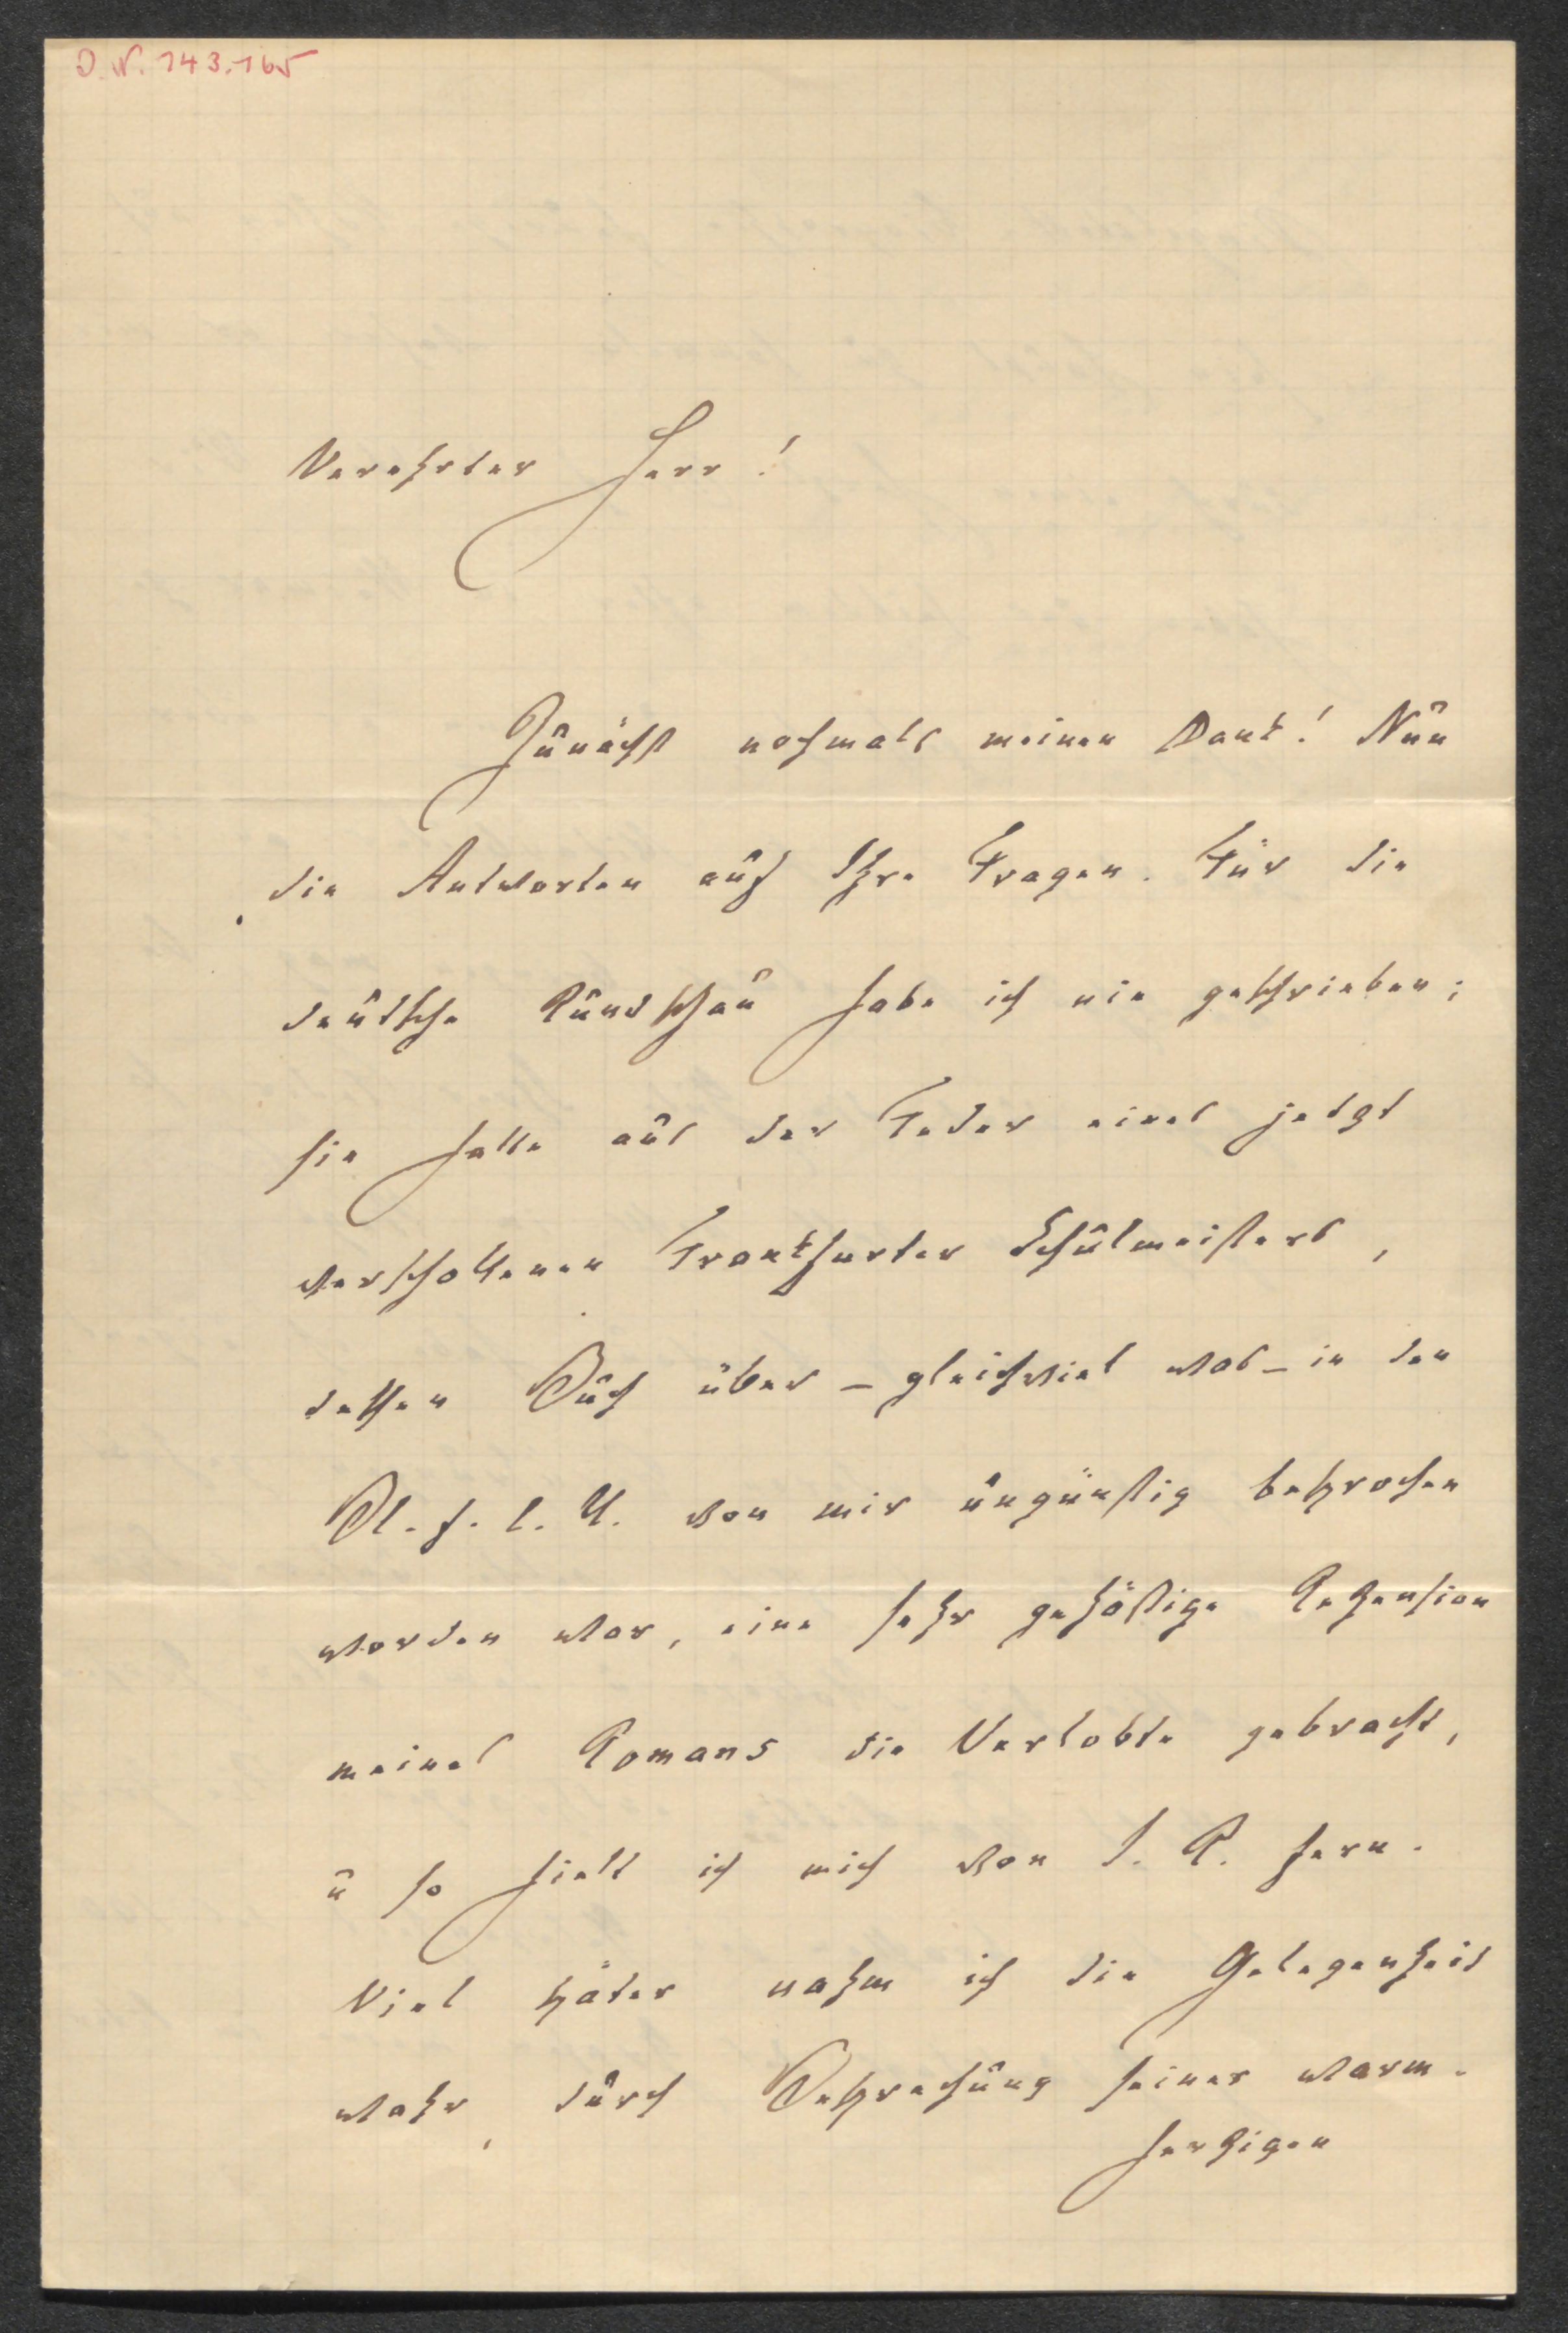 J. N. 143.165
Verehrter Herr!
Zunächst nochmals meinen Dank! Nun
die Antworten auf Ihre Fragen. Für die
deutsche Rundschau habe ich nie geschrieben;
sie hatte aus der Feder eines jetzt
verschollenen Frankfurter Schulmeisters,
dessen Buch über – gleichviel was – in den
Bl. f. l. U. von mir ungünstig besprochen
worden war, eine sehr gehässige Rezension
meines Romans die Verlobte gebracht,
u so hielt ich mich von d. R. fern.
Viel später nahm ich die Gelegenheit
wahr, durch Besprechung seiner warm-
herzigen